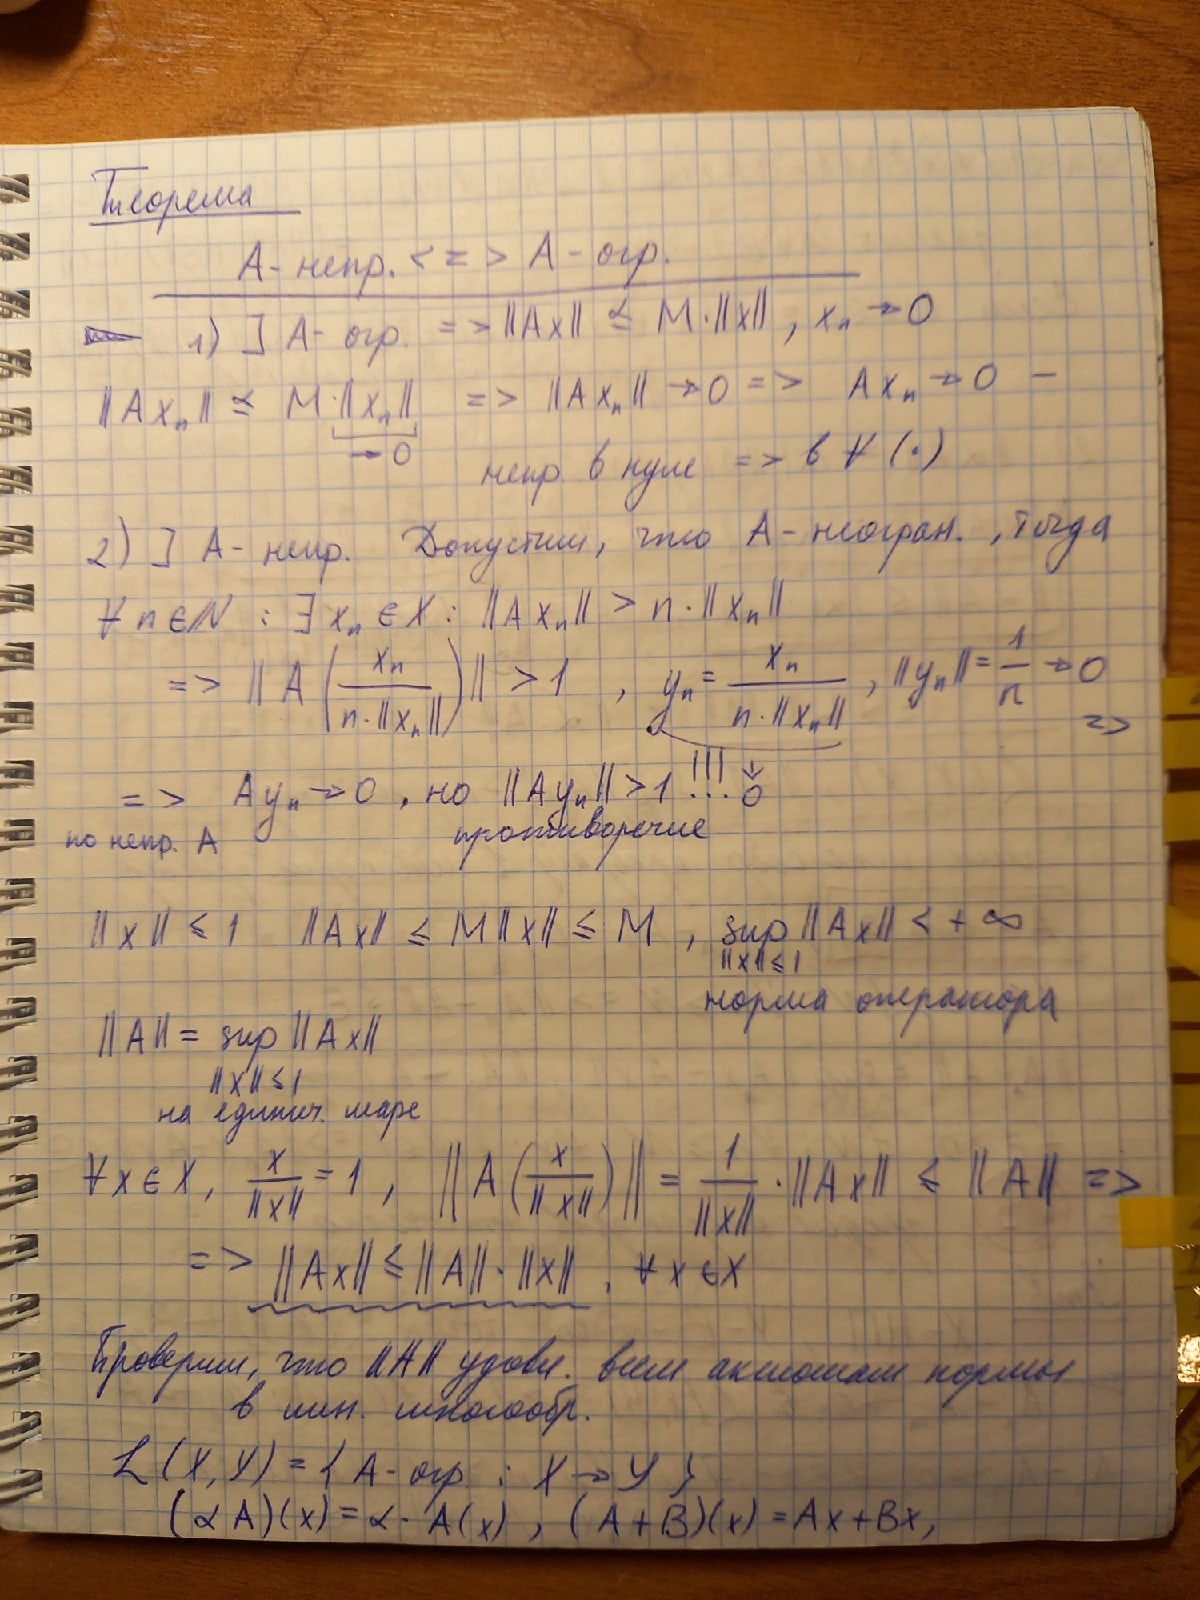 Теорема
А - непр. <=> А - огр.
1) ] А - огр. => ||Ax|| ≤ M·||x||, xₙ → 0
||Axₙ|| ≤ M·||xₙ|| => ||Axₙ|| → 0 => Axₙ → 0 –
→ 0
непр. в нуле => в ∀ (·)
2) ] А - непр. Допустим, что А - неогран., тогда
∀ n ∈ N : ∃ xₙ ∈ X : ||Axₙ|| > n·||xₙ||
=> ||A(xₙ / (n·||xₙ||))|| > 1 , yₙ = xₙ / (n·||xₙ||) , ||yₙ|| = 1/n → 0 =>
=> Ayₙ → 0 , но ||Ayₙ|| > 1 !!! ↓ 0
по непр. А противоречие
||x|| ≤ 1 ||Ax|| ≤ M||x|| ≤ M , sup ||Ax|| < +∞
||x|| ≤ 1
норма оператора
||A|| = sup ||Ax||
||x|| ≤ 1
на единич. шаре
∀ x ∈ X, x/||x|| = 1 , ||A(x/||x||)|| = 1/||x|| · ||Ax|| ≤ ||A|| =>
=> ||Ax|| ≤ ||A||·||x|| , ∀ x ∈ X
Проверим, что ||A|| удовл. всем аксиомам нормы
в лин. многообр.
L(X, Y) = { A - огр. : X → Y }
(αA)(x) = α·A(x) , (A+B)(x) = Ax + Bx,